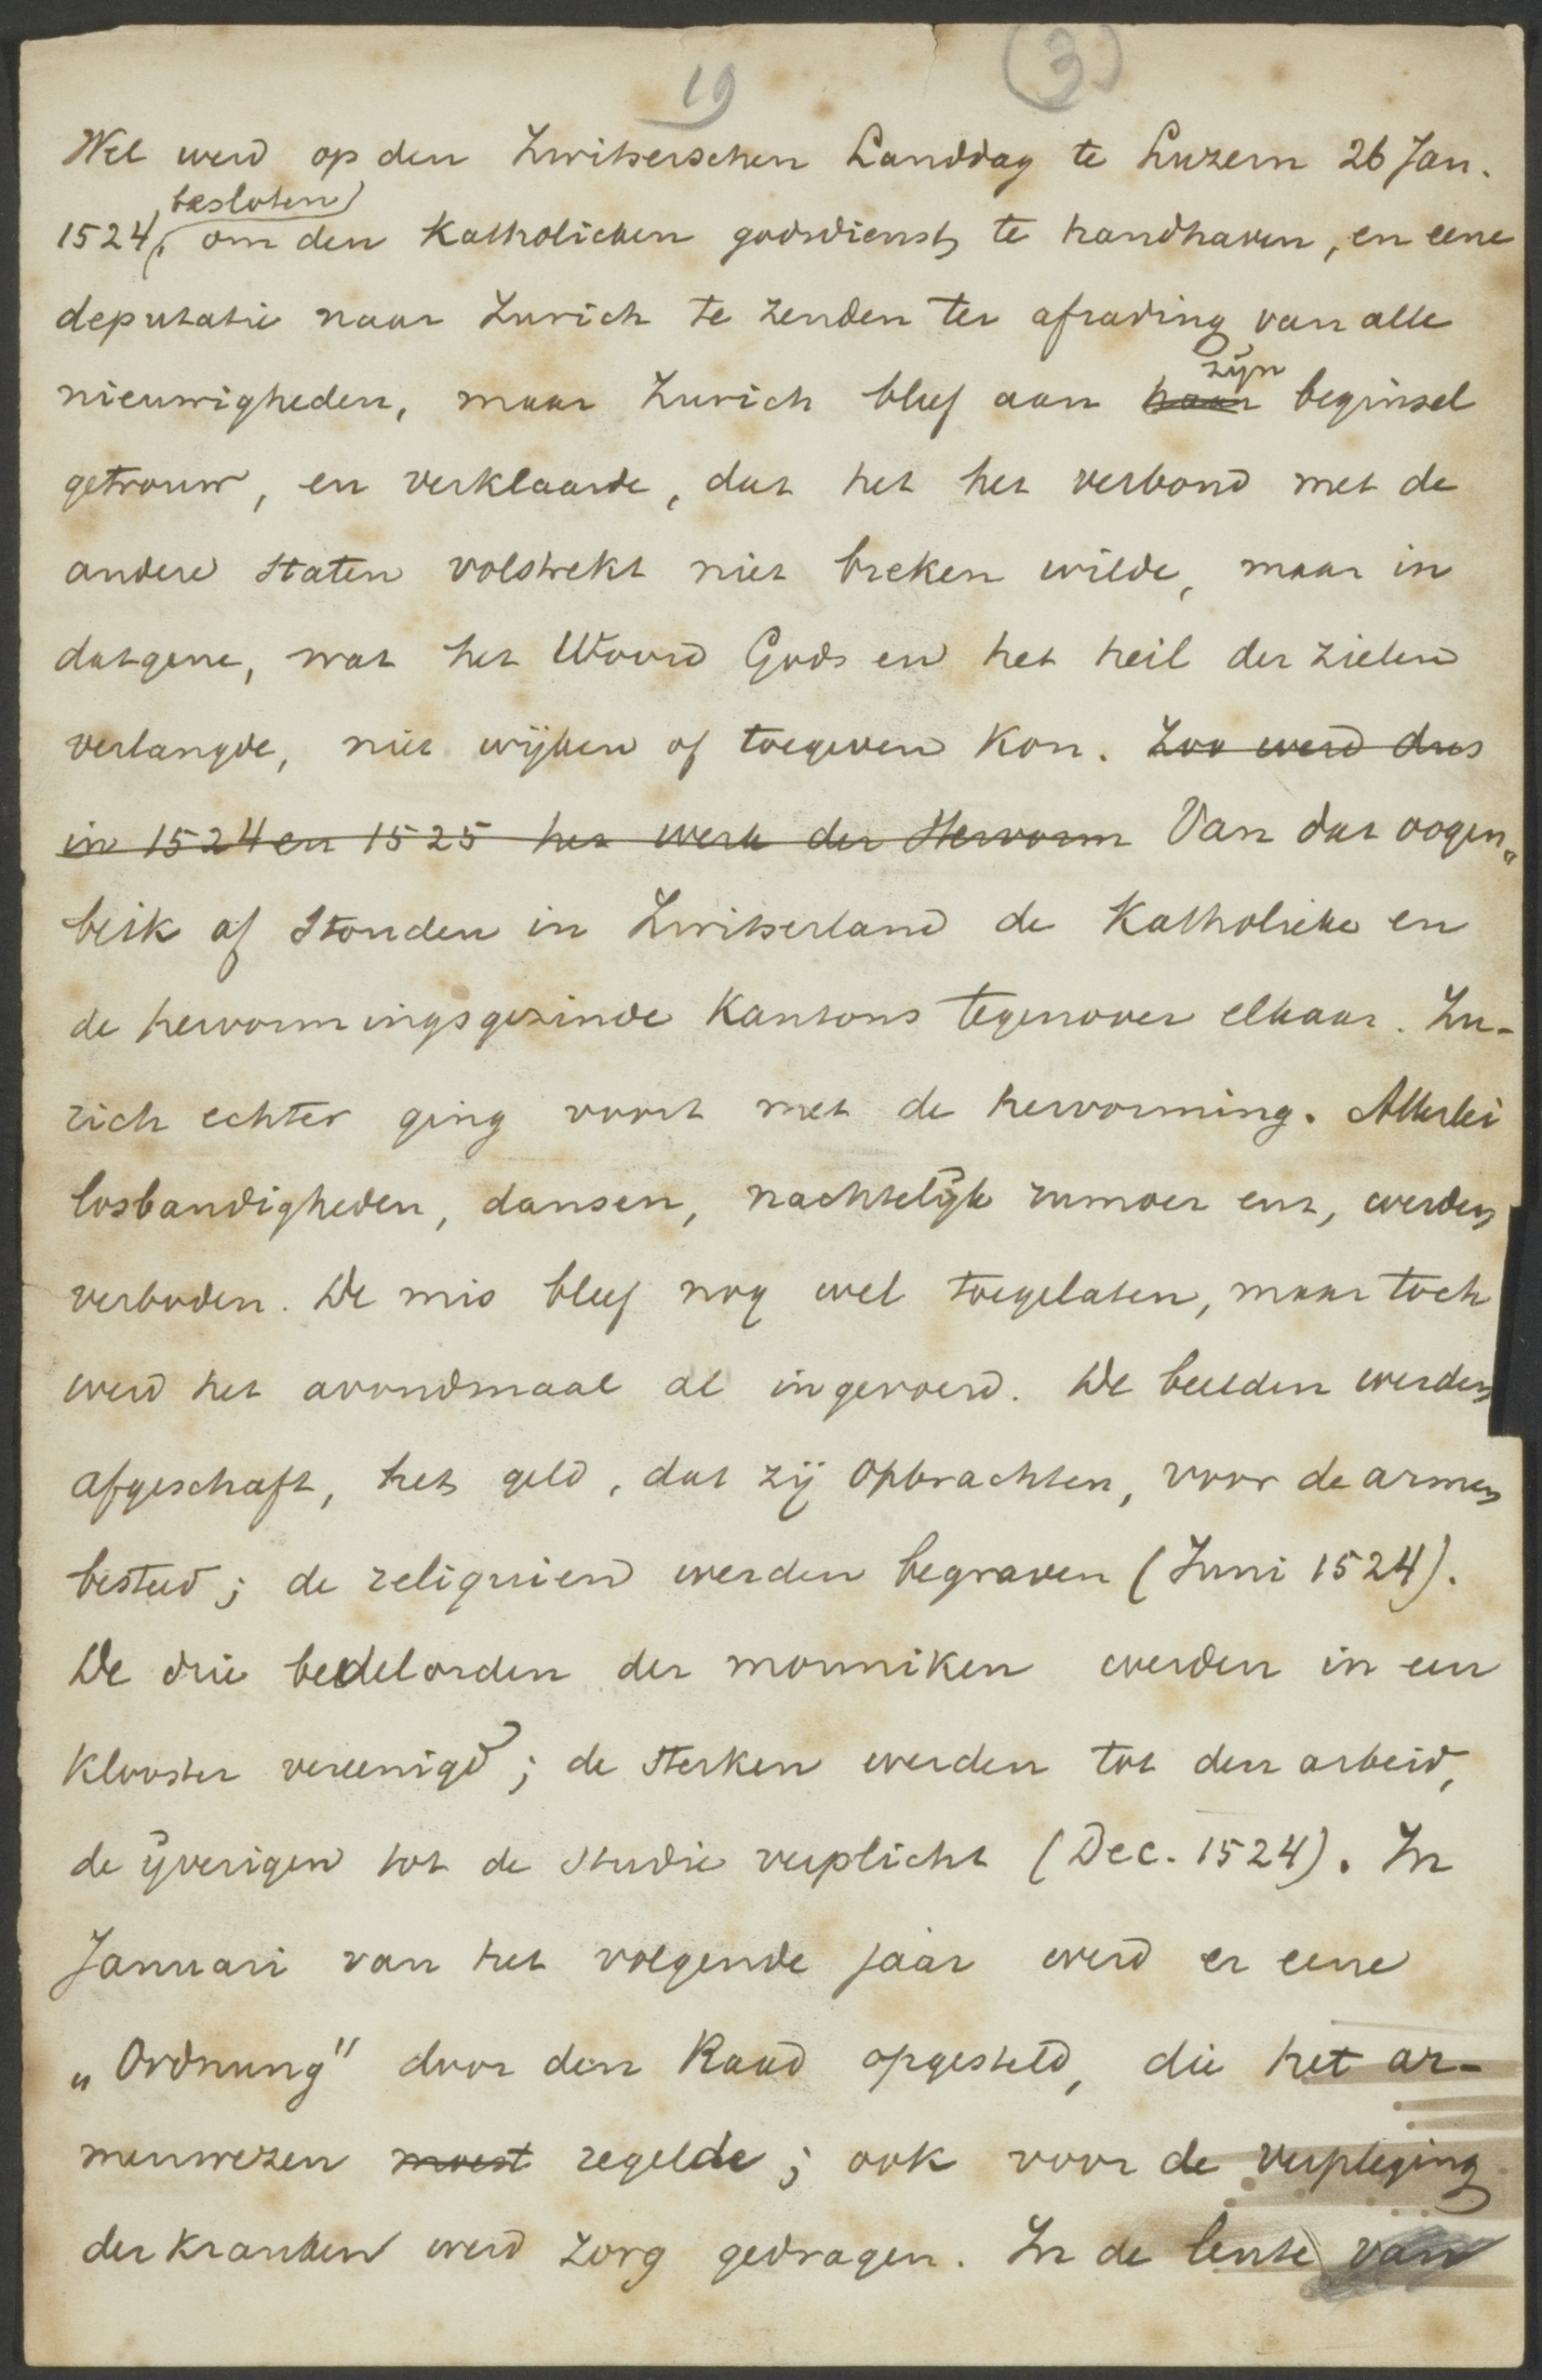 19 (3)
Wel werd op den Zwitserschen Landdag te Luzern 26 Jan.
besloten
1524, om den Katholieken godsdienst te handhaven, en eene
deputatie naar Zurich te zenden ter afrading van alle
zijn
nieuwigheden, maar Zurich bleef aan haar beginsel
getrouw, en verklaarde, dat het het verbond met de
andere staten volstrekt niet breken wilde, maar in
datgene, wat het Woord Gods en het heil der zielen
verlangde, niet wijken of toegeven kon. Zoo werd dus
in 1524 en 1525 het werk der Hervorm Van dat oogen„
blik af stonden in Zwitserland de Katholieke en
de hervormingsgezinde Kantons tegenover elkaar. Zu-
rich echter ging voort met de hervorming. Allerlei
losbandigheden, dansen, nachtelijk rumoer enz, werden
verboden. De mis bleef nog wel toegelaten, maar toch
werd het avondmaal al ingevoerd. De beelden werden
afgeschaft, het geld, dat zij opbrachten, voor de armen
besteed; de reliquien werden begraven (Juni 1524).
De drie bedelorden der monniken werden in een
Klooster vereenigd; de sterken werden tot den arbeid,
de ijverigen tot de studie verplicht (Dec. 1524). In
Januari van het volgende jaar werd er eene
„Ordnung" door den Raad opgesteld, die het ar-
menwezen moest regelde; ook voor de verpleging
der kranken werd zorg gedragen. In de lente van